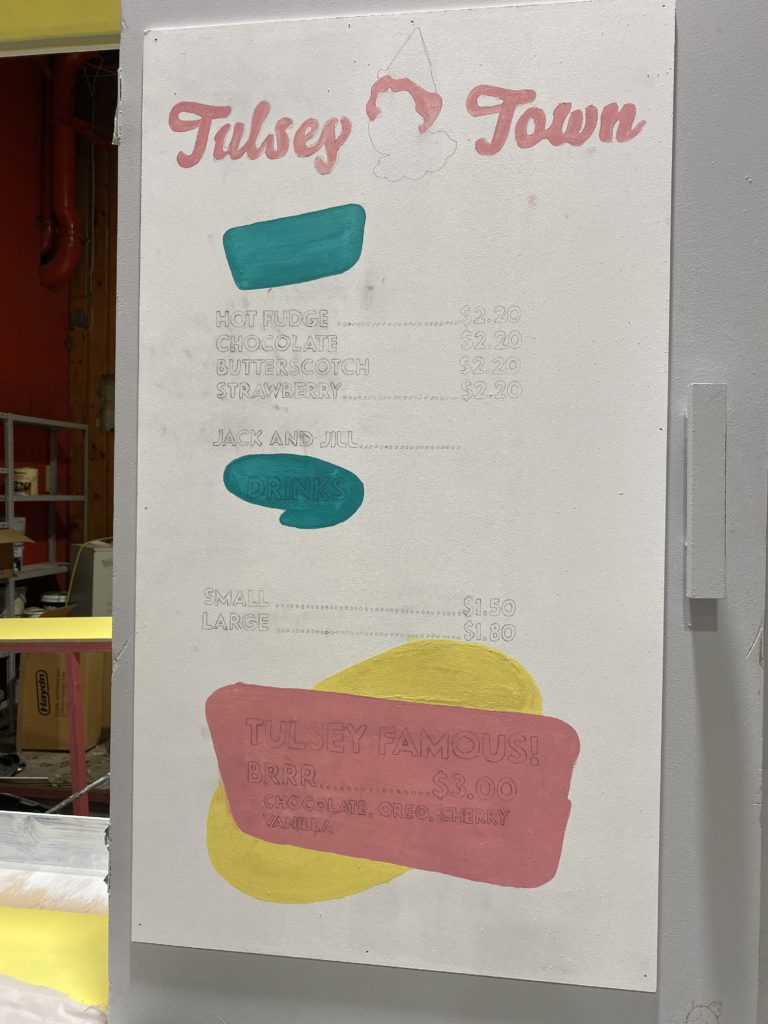 Tulsey Town
HOT FUDGE ........................ $2.20
CHOCOLATE $2.20
BUTTERSCOTCH $2.20
STRAWBERRY ........................ $2.20
JACK AND JILL ........................
DRINKS
SMALL ........................ $1.50
LARGE ........................ $1.80
TULSEY FAMOUS!
BRRR ................ $3.00
CHOCOLATE, OREO, CHERRY
VANILLA
Haydn